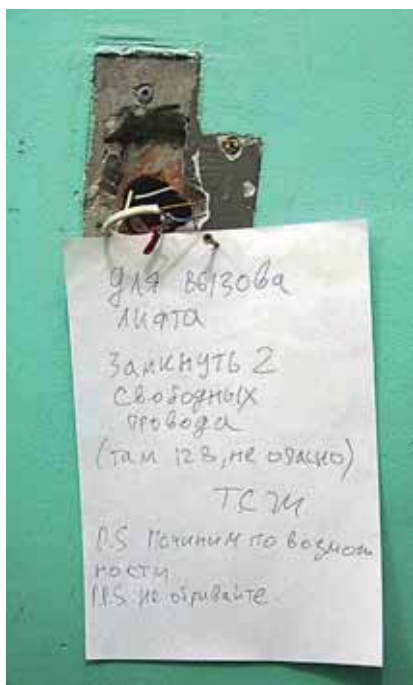 Для вызова
лифта
Замкнуть 2
свободных
провода
(там 12 В, не опасно)
ТСЖ
P.S. Починим по возмож
ности
P.P.S. не обрывайте.